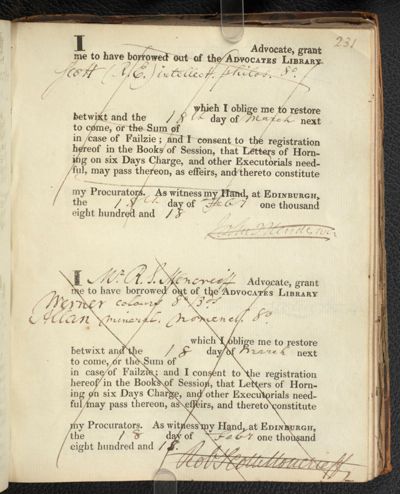 231
I Advocate, grant
me to have borrowed out of the ADVOCATES LIBRARY
Scott (R. E.) intellect. philos. 8o.
which I oblige me to restore
betwixt and the 18th day of March next
to come, or the Sum of
in case of Failzie; and I consent to the registration
hereof in the Books of Session, that Letters of Horn-
ing on six Days Charge, and other Executorials need-
ful, may pass thereon, as effeirs, and thereto constitute
my Procurators. As witness my Hand, at EDINBURGH,
the 18th day of Feby one thousand
eight hundred and 18
John
I Mr R. S. Moncreiff Advocate, grant
me to have borrowed out of the ADVOCATES LIBRARY
Werner colours 8o Bds
Allan mineral. nomencl. 8o
which I oblige me to restore
betwixt and the 18 day of March next
to come, or the Sum of
in case of Failzie; and I consent to the registration
hereof in the Books of Session, that Letters of Horn-
ing on six Days Charge, and other Executorials need-
ful may pass thereon, as effeirs, and thereto constitute
my Procurators. As witness my Hand, at EDINBURGH,
the 18 day of Feby one thousand
eight hundred and 18.
Robt Scott Moncrieff